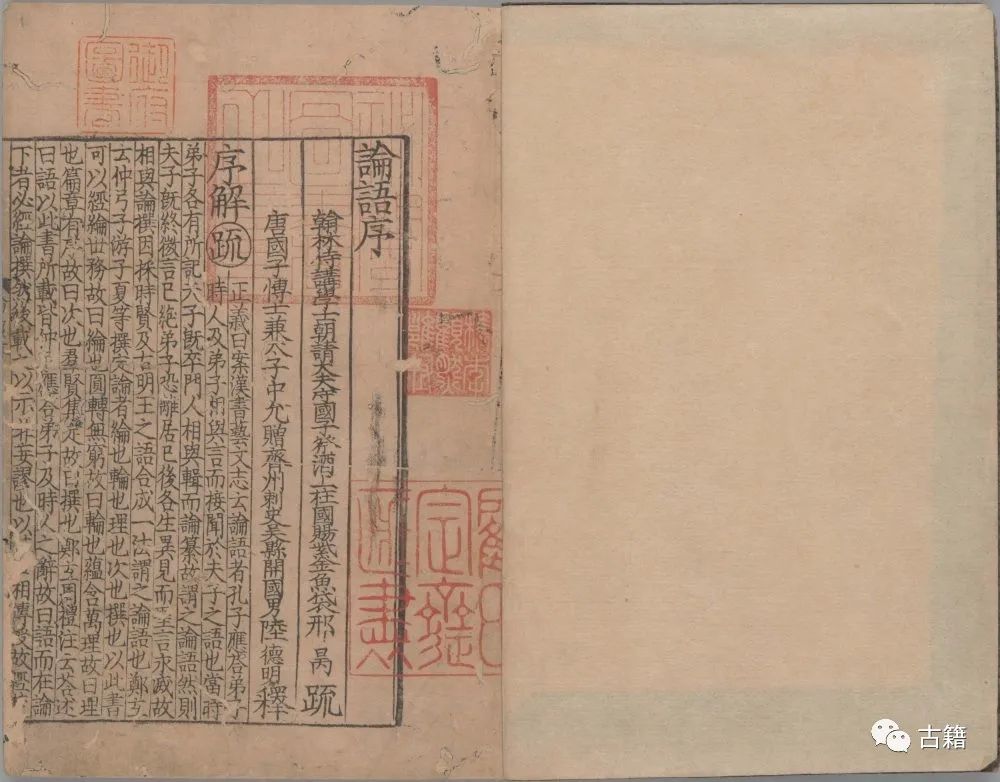 論語序
翰林侍講學士朝請大夫守國子祭酒上柱國賜紫金魚袋邢昺疏
唐國子博士兼太子中允贈齊州刺史吳縣開國男陸德明釋
序解疏正義曰案漢書藝文志云論語者孔子應荅弟子
時人及弟子相與言而接聞於夫子之語也當時
弟子各有所記夫子既卒門人相與輯而論纂故謂之論語然則
夫子既終微言已絕弟子恐離居已後各生異見而聖言永滅故
相與論撰因採時賢及古明王之語合成一法謂之論語也鄭玄
云仲弓子游子夏等撰定論者綸也輪也理也次也撰也以此書
可以經綸世務故曰綸也圓轉無窮故曰輪也蘊含萬理故曰理
也篇章有序故曰次也羣賢集定故曰撰也鄭玄周禮注云荅述
曰語以此書所載皆仲尼應荅弟子及時人之辭故曰語而在論
下者必經論撰然後載之以示非妄謬也以
相傳受故經
御府圖書
古籍